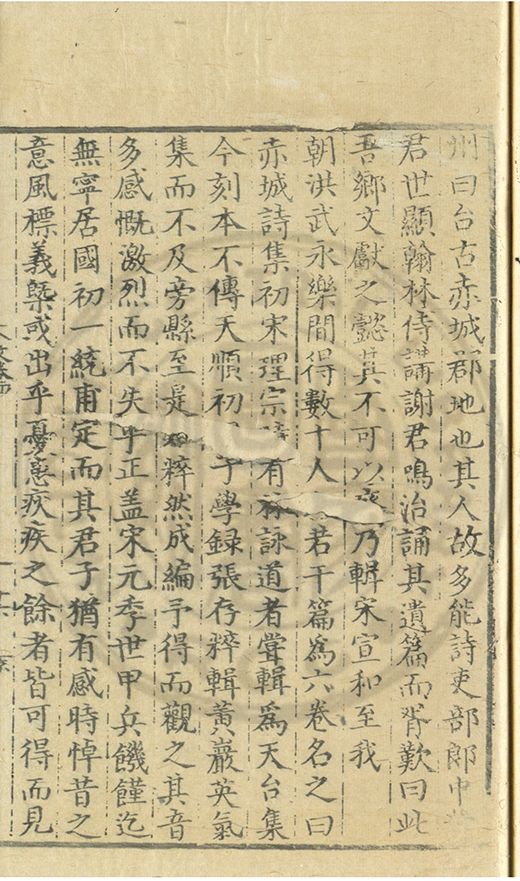 州曰台古赤城郡地也其人故多能詩吏部郎中
君世顯翰林侍講謝君鳴治誦其遺篇而胥歎曰此
吾鄉文獻之懿其不可以乃輯宋宣和至我
朝洪武永樂間得數十人若干篇為六卷名之曰
赤城詩集初宋理宗時有林詠道者甞輯為天台集
今刻本不傳天順初學録張存粹輯黃巖英氣
集而不及旁縣至是粹然成編予得而觀之其音
多感慨激烈而不失乎正盖宋元季世甲兵饑饉迄
無寧居國初一統甫定而其君子猶有感時悼昔之
意風標義槩或出乎憂患疢疾之餘者皆可得而見